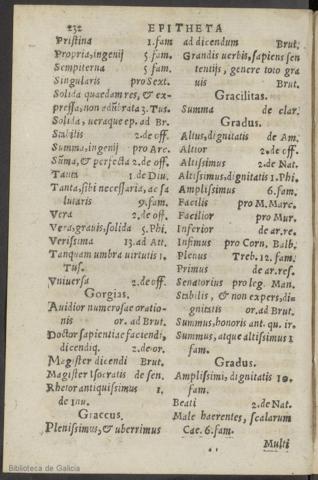 232 EPITHETA
Pristina 1.fam
Propria, ingenij 5.fam.
Sempiterna 5 fam.
Singularis pro Sext.
Solida quædam res, & ex-
pressa, non adũbrata 3. Tus.
Solida, ueraque ep. ad Br.
Stabilis 2.de off.
Summa, ingenij pro Arc.
Sũma, & perfecta 2.de off.
Tanta 1 de Diu.
Tanta, sibi necessaria, ac sa
lutaris 9.fam.
Vera 2.de off.
Vera, grauis, solida 5.Phi.
Verissima 13.ad Att.
Tanquam umbra uirtutis 1.
Tus.
Vniuersa 2.de off.
Gorgias.
Auidior numerosæ oratio-
nis or. ad Brut.
Doctor sapientiæ faciendi,
dicendiq. 2.de or.
Magister dicendi Brut.
Magister Isocratis de sen.
Rhetor antiquissimus 1.
de inu.
Graccus.
Plenissimus, & uberrimus
ad dicendum Brut.
Grandis uerbis, sapiens sen
tentijs, genere toto gra
uis Brut.
Gracilitas.
Summa de clar.
Gradus.
Altus, dignitatis de Am.
Altior 2.de off.
Altissimus 2.de Nat.
Altissimus, dignitatis 1.Phi.
Amplissimus 6.fam.
Facilis pro M.Marc.
Facilior pro Mur.
Inferior de ar.re.
Infimus pro Corn. Balb.
Plenus Treb. 12. fam.
Primus de ar.res.
Senatorius pro leg. Man.
Stabilis, & non expers, di=
gnitatis or.ad Brut.
Summus, honoris ant. qu. ir.
Summus, atque altissimus 1
fam.
Gradus.
Amplissimi, dignitatis 10.
fam.
Beati 2.de Nat.
Male hærentes, scalarum
Cæc. 6.fam.
Multi
Biblioteca de Galicia